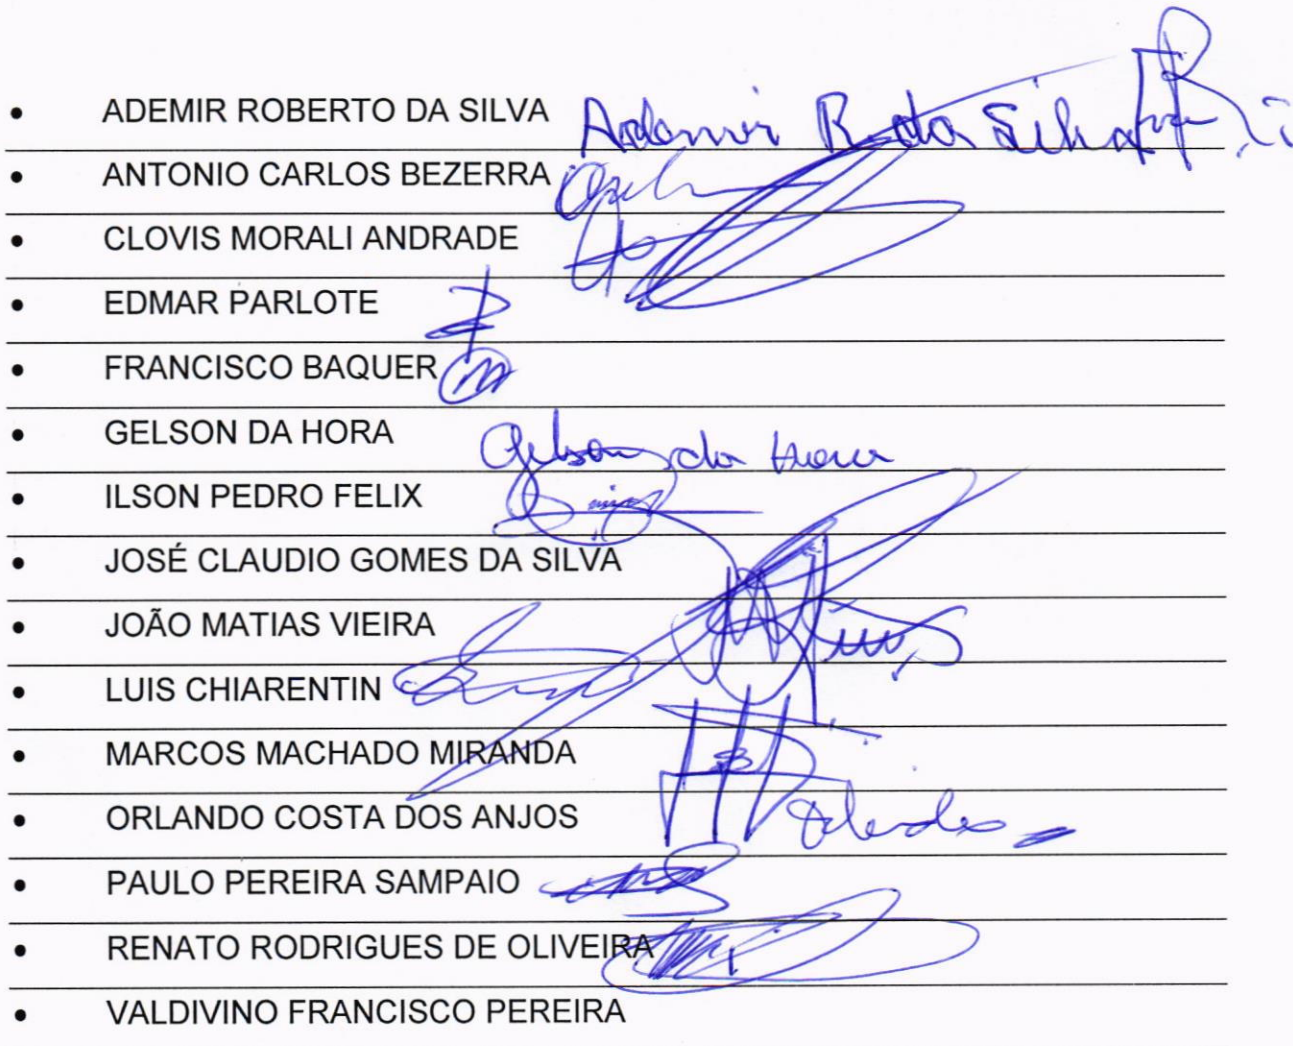 • ADEMIR ROBERTO DA SILVA Ademir R. da Silva
• ANTONIO CARLOS BEZERRA
• CLOVIS MORALI ANDRADE
• EDMAR PARLOTE
• FRANCISCO BAQUER
• GELSON DA HORA Gelson da Hora
• ILSON PEDRO FELIX
• JOSÉ CLAUDIO GOMES DA SILVA
• JOÃO MATIAS VIEIRA
• LUIS CHIARENTIN
• MARCOS MACHADO MIRANDA
• ORLANDO COSTA DOS ANJOS
• PAULO PEREIRA SAMPAIO
• RENATO RODRIGUES DE OLIVEIRA
• VALDIVINO FRANCISCO PEREIRA